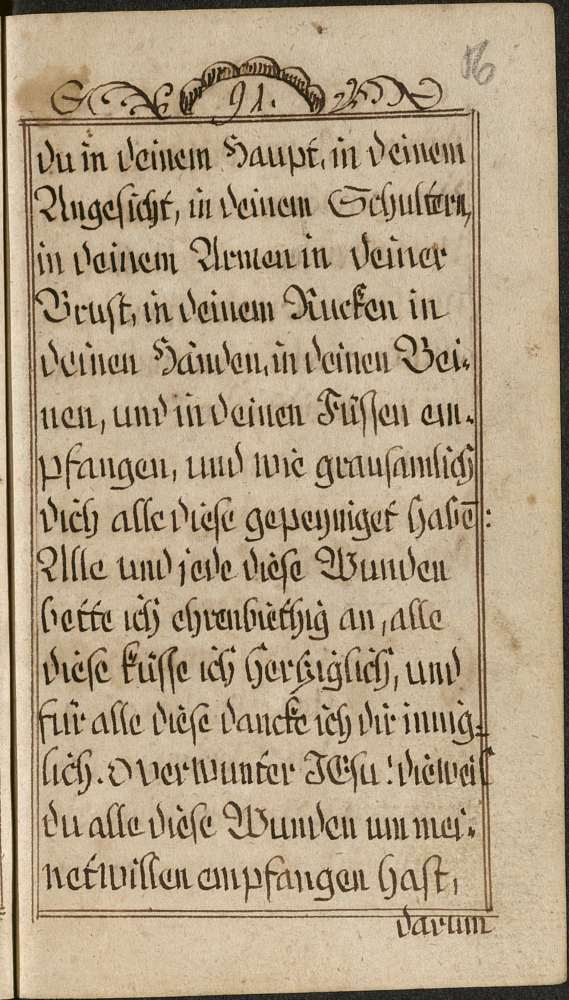 56
91.
du in deinem Haupt, in deinem
Angesicht, in deinem Schultern,
in deinem Armen in deiner
Brust, in deinem Rucken in
deinen Händen, in deinen Bei-
nen, und in deinen Füssen em-
pfangen, und wie grausamlich
dich alle diese gepeyniget habē:
Alle und jede diese Wunden
bette ich ehrenbiethig an, alle
diese küsse ich hertziglich, und
für alle diese dancke ich dir innig-
lich. O verwunter JEsu! dieweil
du alle diese Wunden um mei-
netwillen empfangen hast,
darum